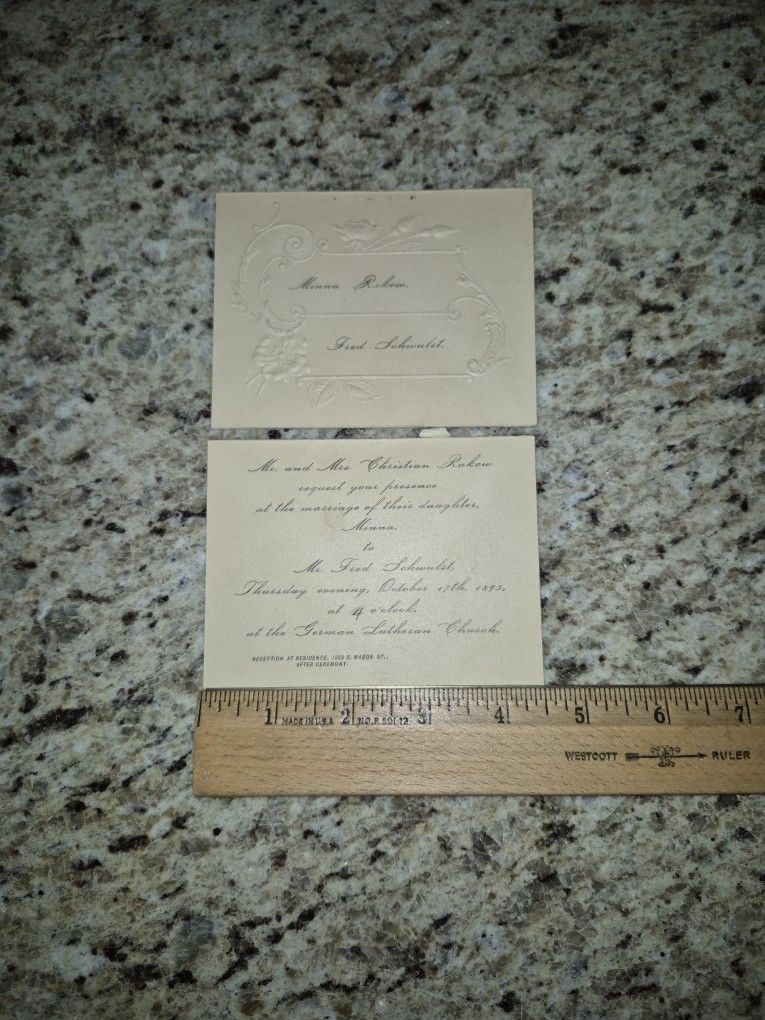 Minna Rakow.
Fred Schwulst.
Mr. and Mrs. Christian Rakow
request your presence
at the marriage of their daughter,
Minna,
to
Mr. Fred Schwulst,
Thursday evening, October 17th, 1895,
at 4 o'clock,
at the German Lutheran Church.
RECEPTION AT RESIDENCE, 1223 S. MASON ST.,
AFTER CEREMONY.
1 2 3 4 5 6 7
MADE IN U.S.A. NO. R 501 12
WESTCOTT RULER